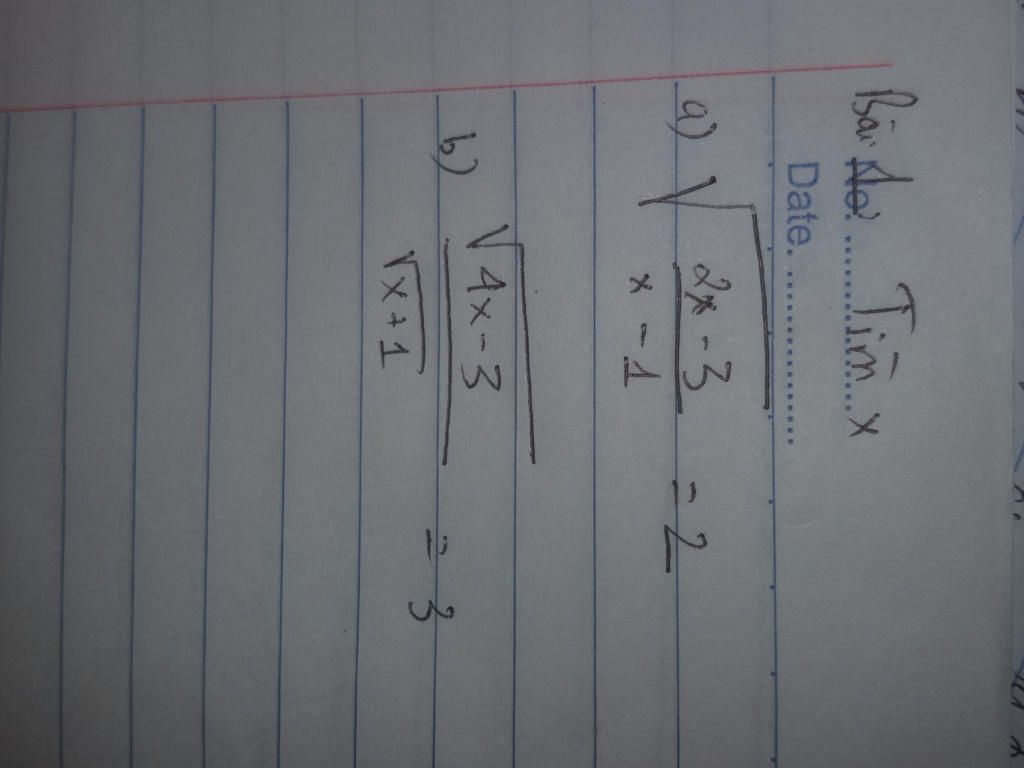 Bài Tìm x
No. ..................
Date. ..................
a) √((2x - 3)/(x - 1)) = 2
b) √(4x - 3)/√(x + 1) = 3